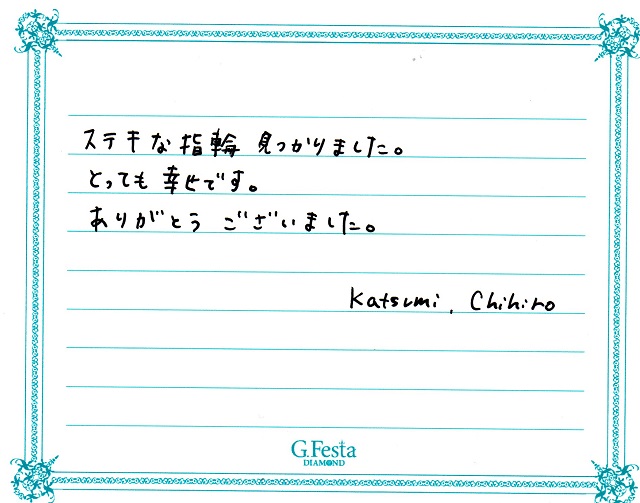 ステキな指輪 見つかりました。
とっても 幸せです。
ありがとう ございました。
Katsumi, Chihiro
G.Festa
DIAMOND